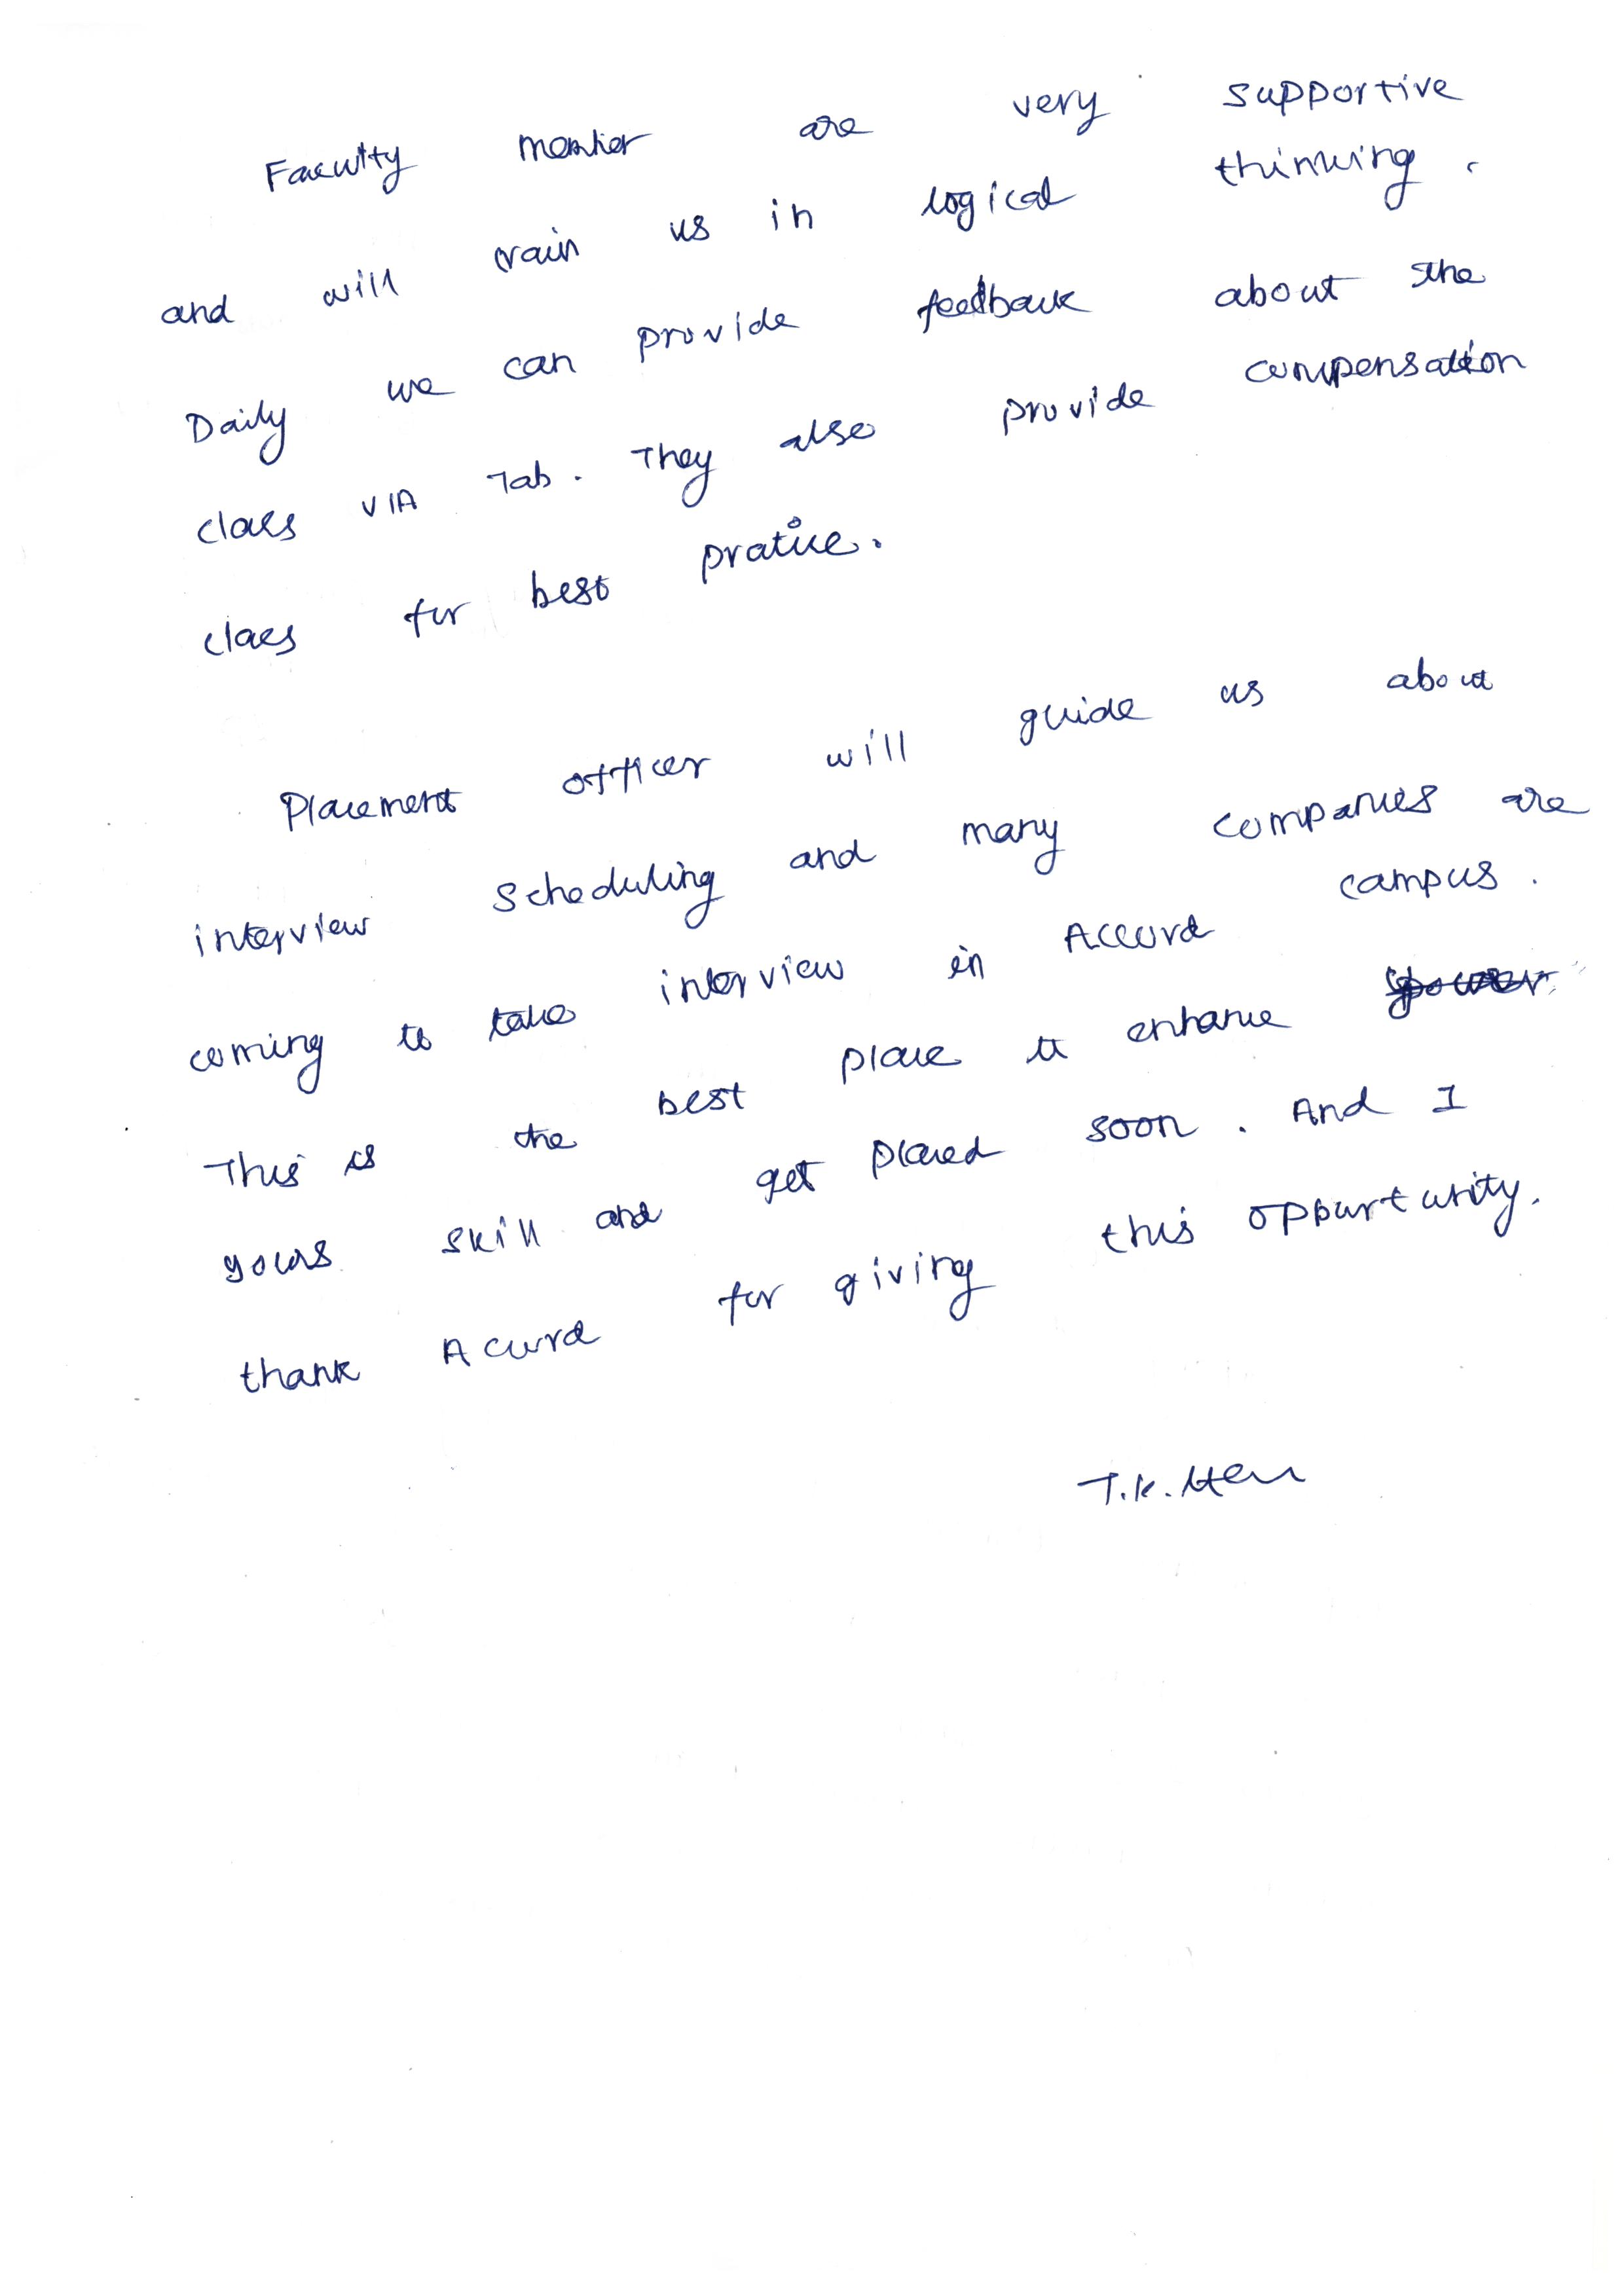 Faculty member are very supportive
and will train us in logical thinking.
Daily we can provide feedback about the
class VIA Tab. They also provide compensation
class for best pratice.
Placement officer will guide us about
interview scheduling and many companies are
coming to take interview in Accord campus.
This is the best place to enhance
yours skill and get placed soon. And I
thank Acord for giving this oppurtunity.